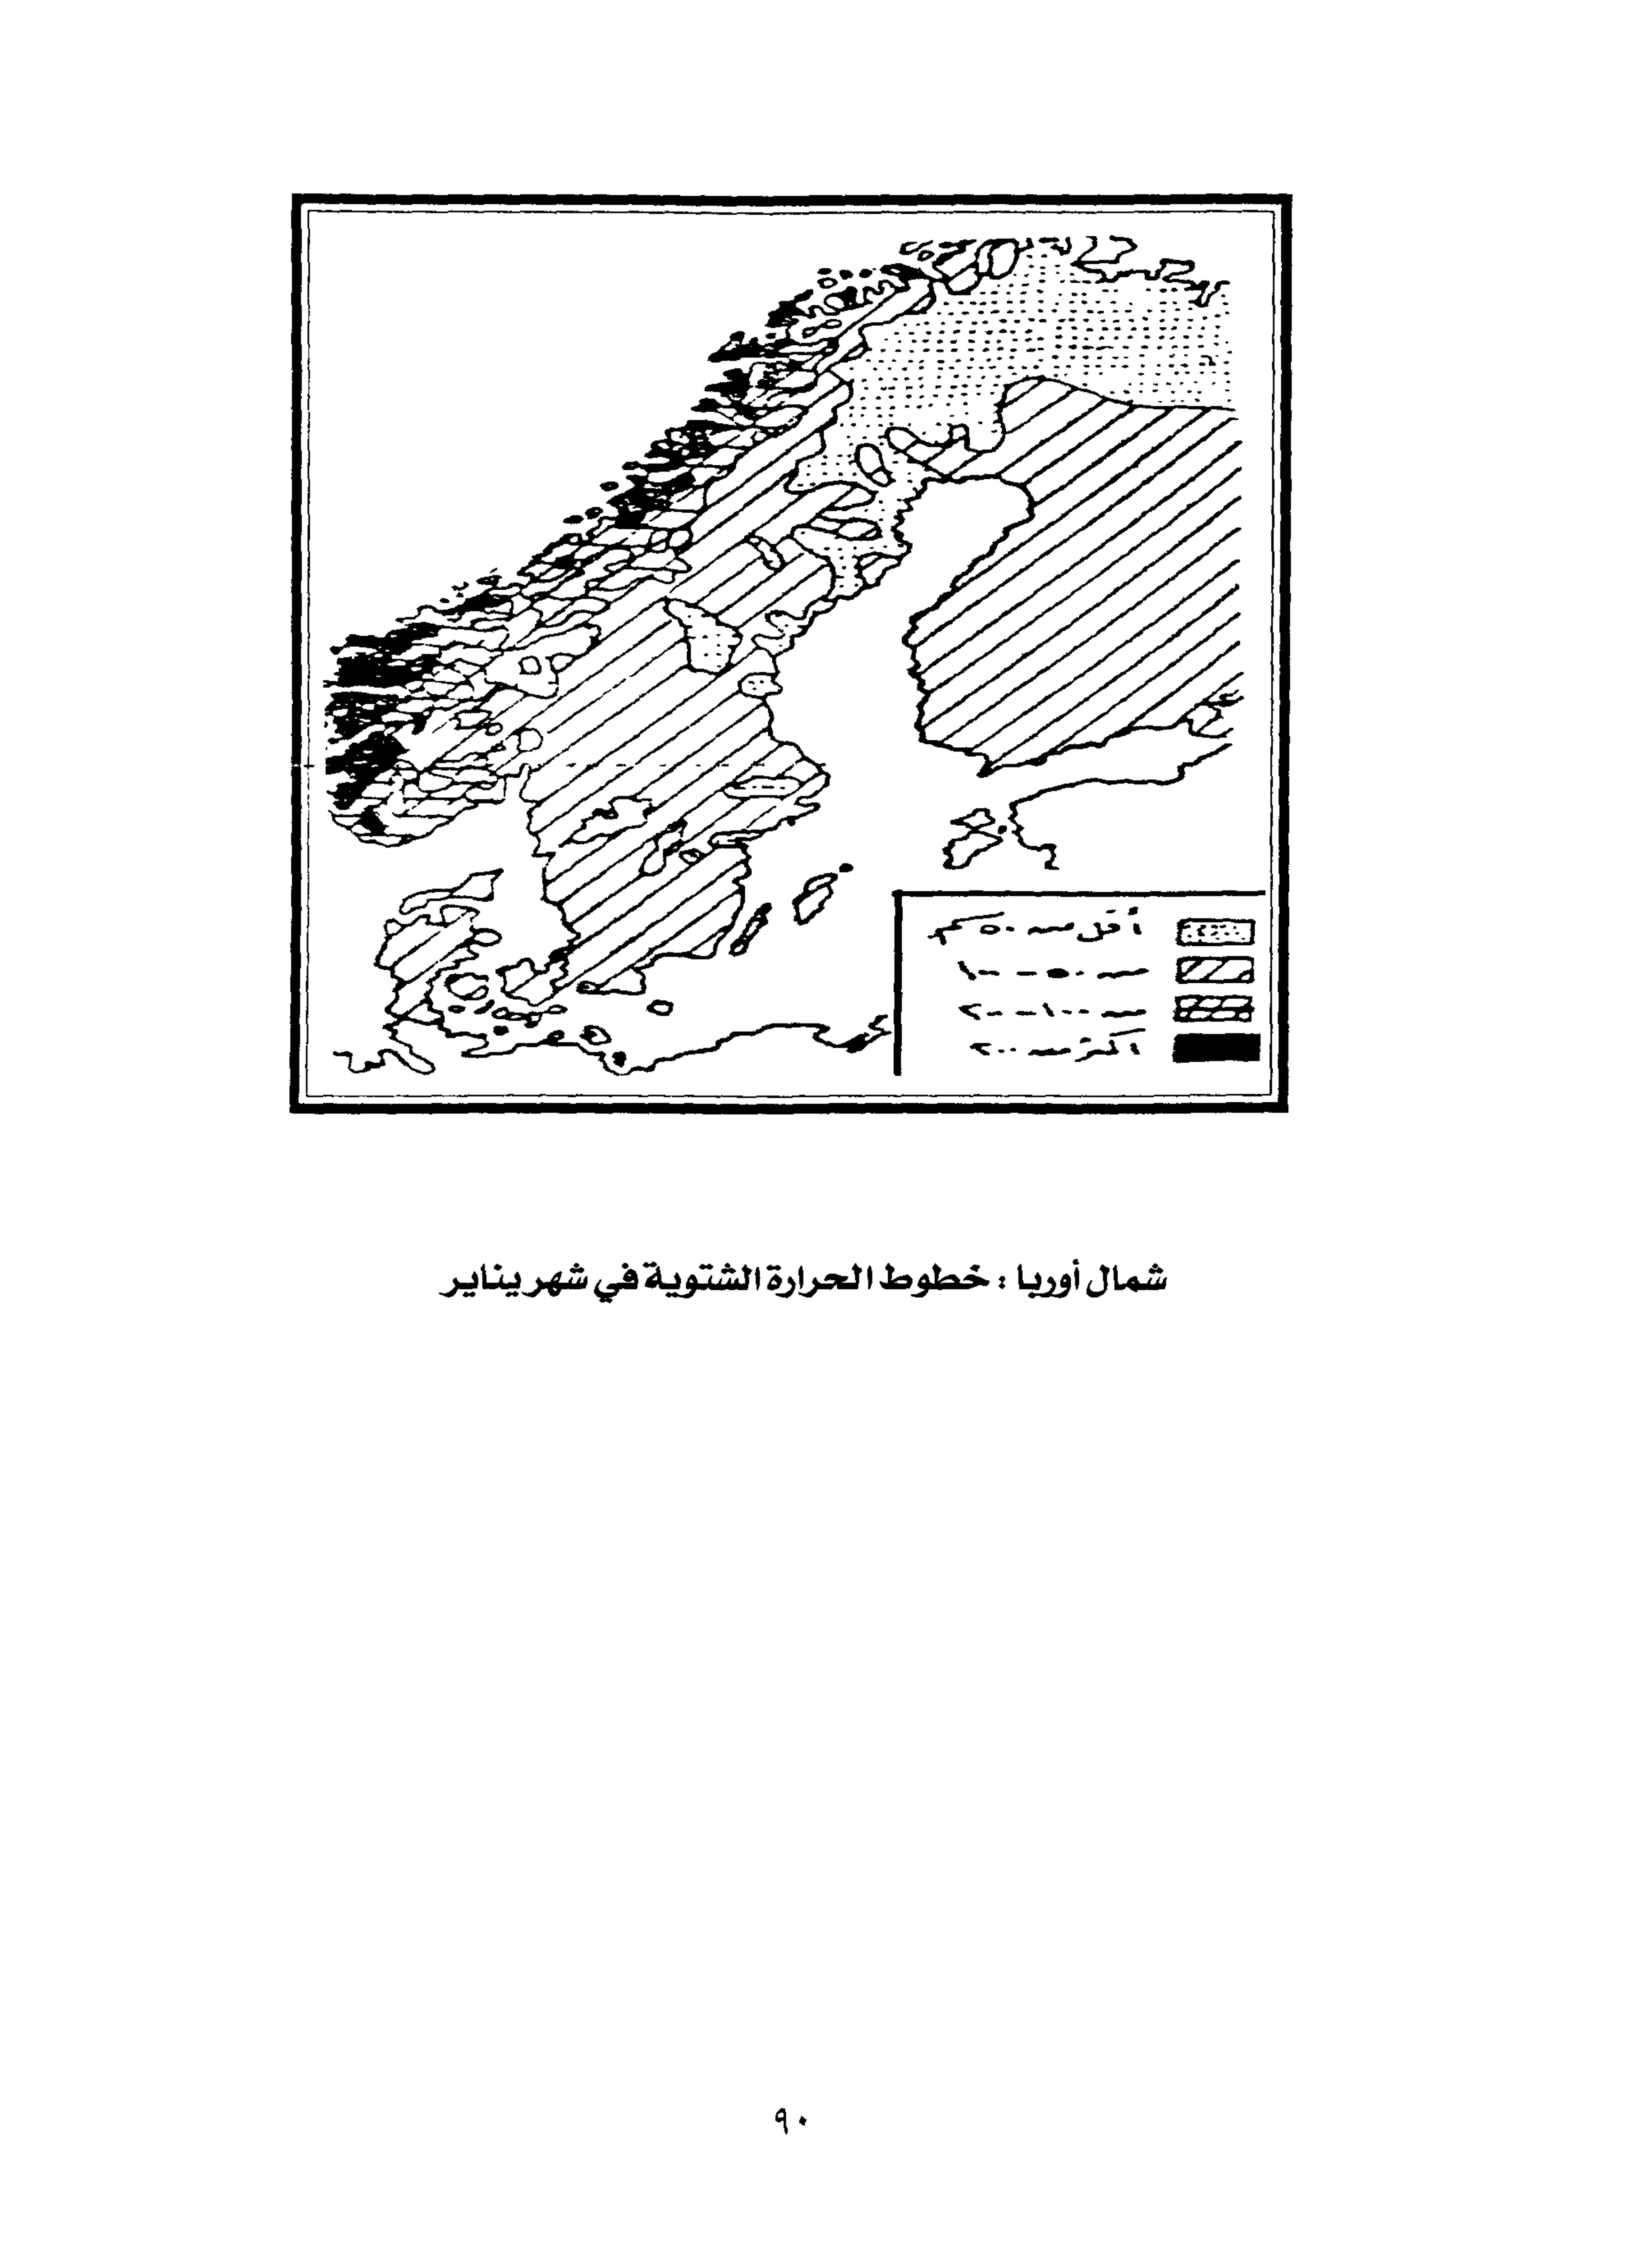 أقل من ٥٠ سم
من ٥٠ - ١٠٠
من ١٠٠ - ٢٠٠
أكثر من ٢٠٠
شمال أوربا : خطوط الحرارة الشتوية في شهر يناير
٩٠